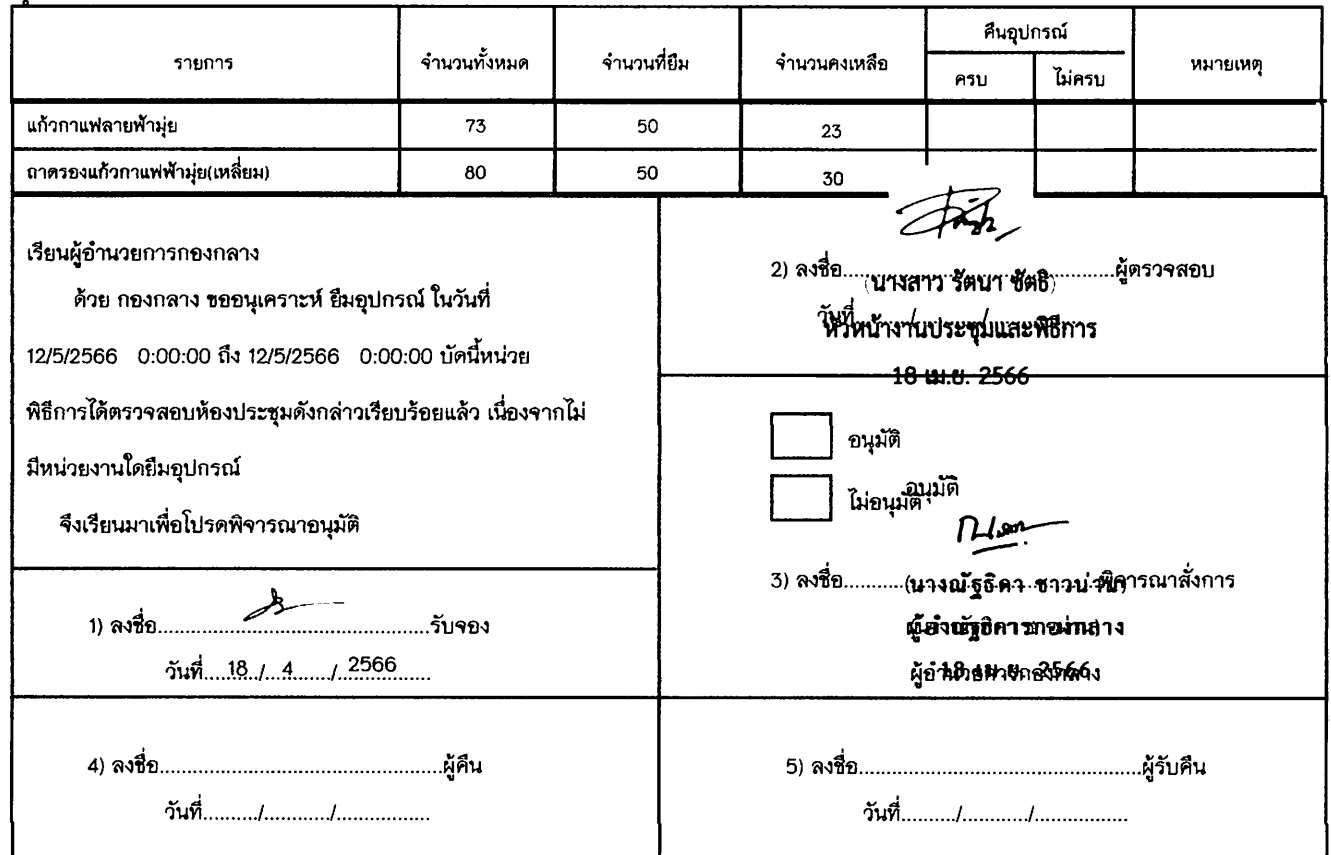 รายการ จำนวนทั้งหมด จำนวนที่ยืม จำนวนคงเหลือ คืนอุปกรณ์ หมายเหตุ
ครบ ไม่ครบ
แก้วกาแฟลายฟ้ามุ่ย 73 50 23
ถาดรองแก้วกาแฟฟ้ามุ่ย(เหลี่ยม) 80 50 30
เรียนผู้อำนวยการกองกลาง
ด้วย กองกลาง ขออนุเคราะห์ ยืมอุปกรณ์ ในวันที่
12/5/2566 0:00:00 ถึง 12/5/2566 0:00:00 บัดนี้หน่วย
พิธีการได้ตรวจสอบห้องประชุมดังกล่าวเรียบร้อยแล้ว เนื่องจากไม่
มีหน่วยงานใดยืมอุปกรณ์
จึงเรียนมาเพื่อโปรดพิจารณาอนุมัติ
1) ลงชื่อ................................................รับจอง
วันที่.....18../...4......./..2566.........
2) ลงชื่อ................................................ผู้ตรวจสอบ
(นางสาว รัตนา ขัตธิ)
วันที่
หัวหน้างานประชุมและพิธีการ
18 เม.ย. 2566
อนุมัติ
ไม่อนุมัติ
อนุมัติ
3) ลงชื่อ...........พิจารณาสั่งการ
(นางณัฐธิดา ชาวน่าน)
ผู้อำนวยการกองกลาง
18 เม.ย. 2566
4) ลงชื่อ................................................ผู้คืน
วันที่........../............/.................
5) ลงชื่อ................................................ผู้รับคืน
วันที่........../............/.................